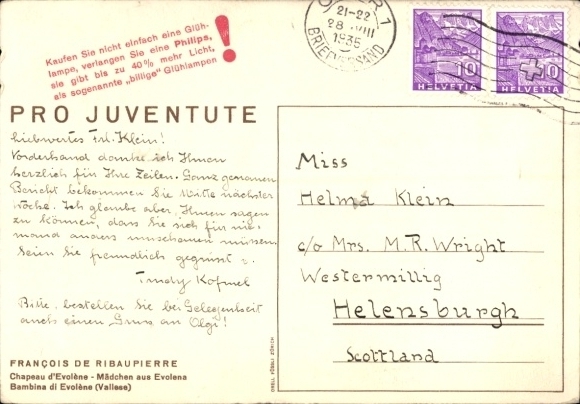 Kaufen Sie nicht einfach eine Glüh-
lampe, verlangen Sie eine Philips,
sie gibt bis zu 40% mehr Licht,
als sogenannte „billige" Glühlampen!
21-22
28 VIII
1935
BRIEFVERSAND
10
HELVETIA
10
HELVETIA
PRO JUVENTUTE
Liebwertes Frl. Klein!
Vorderhand danke ich Ihnen
herzlich für Ihre Zeilen. Ganz genauen
Bericht bekommen Sie Mitte nächster
Woche. Ich glaube aber, Ihnen sagen
zu können, dass Sie sich für nie-
mand anders umschauen müssen.
Seien Sie freundlich gegrüsst v.
Trudy Kofmel
Bitte, bestellen Sie bei Gelegenheit
auch einen Gruss an Olgi!
Miss
Helma Klein
c/o Mrs. M.R. Wright
Westermillig
Helensburgh
Scottland
FRANÇOIS DE RIBAUPIERRE
Chapeau d'Evolène - Mädchen aus Evolena
Bambina di Evolène (Vallese)